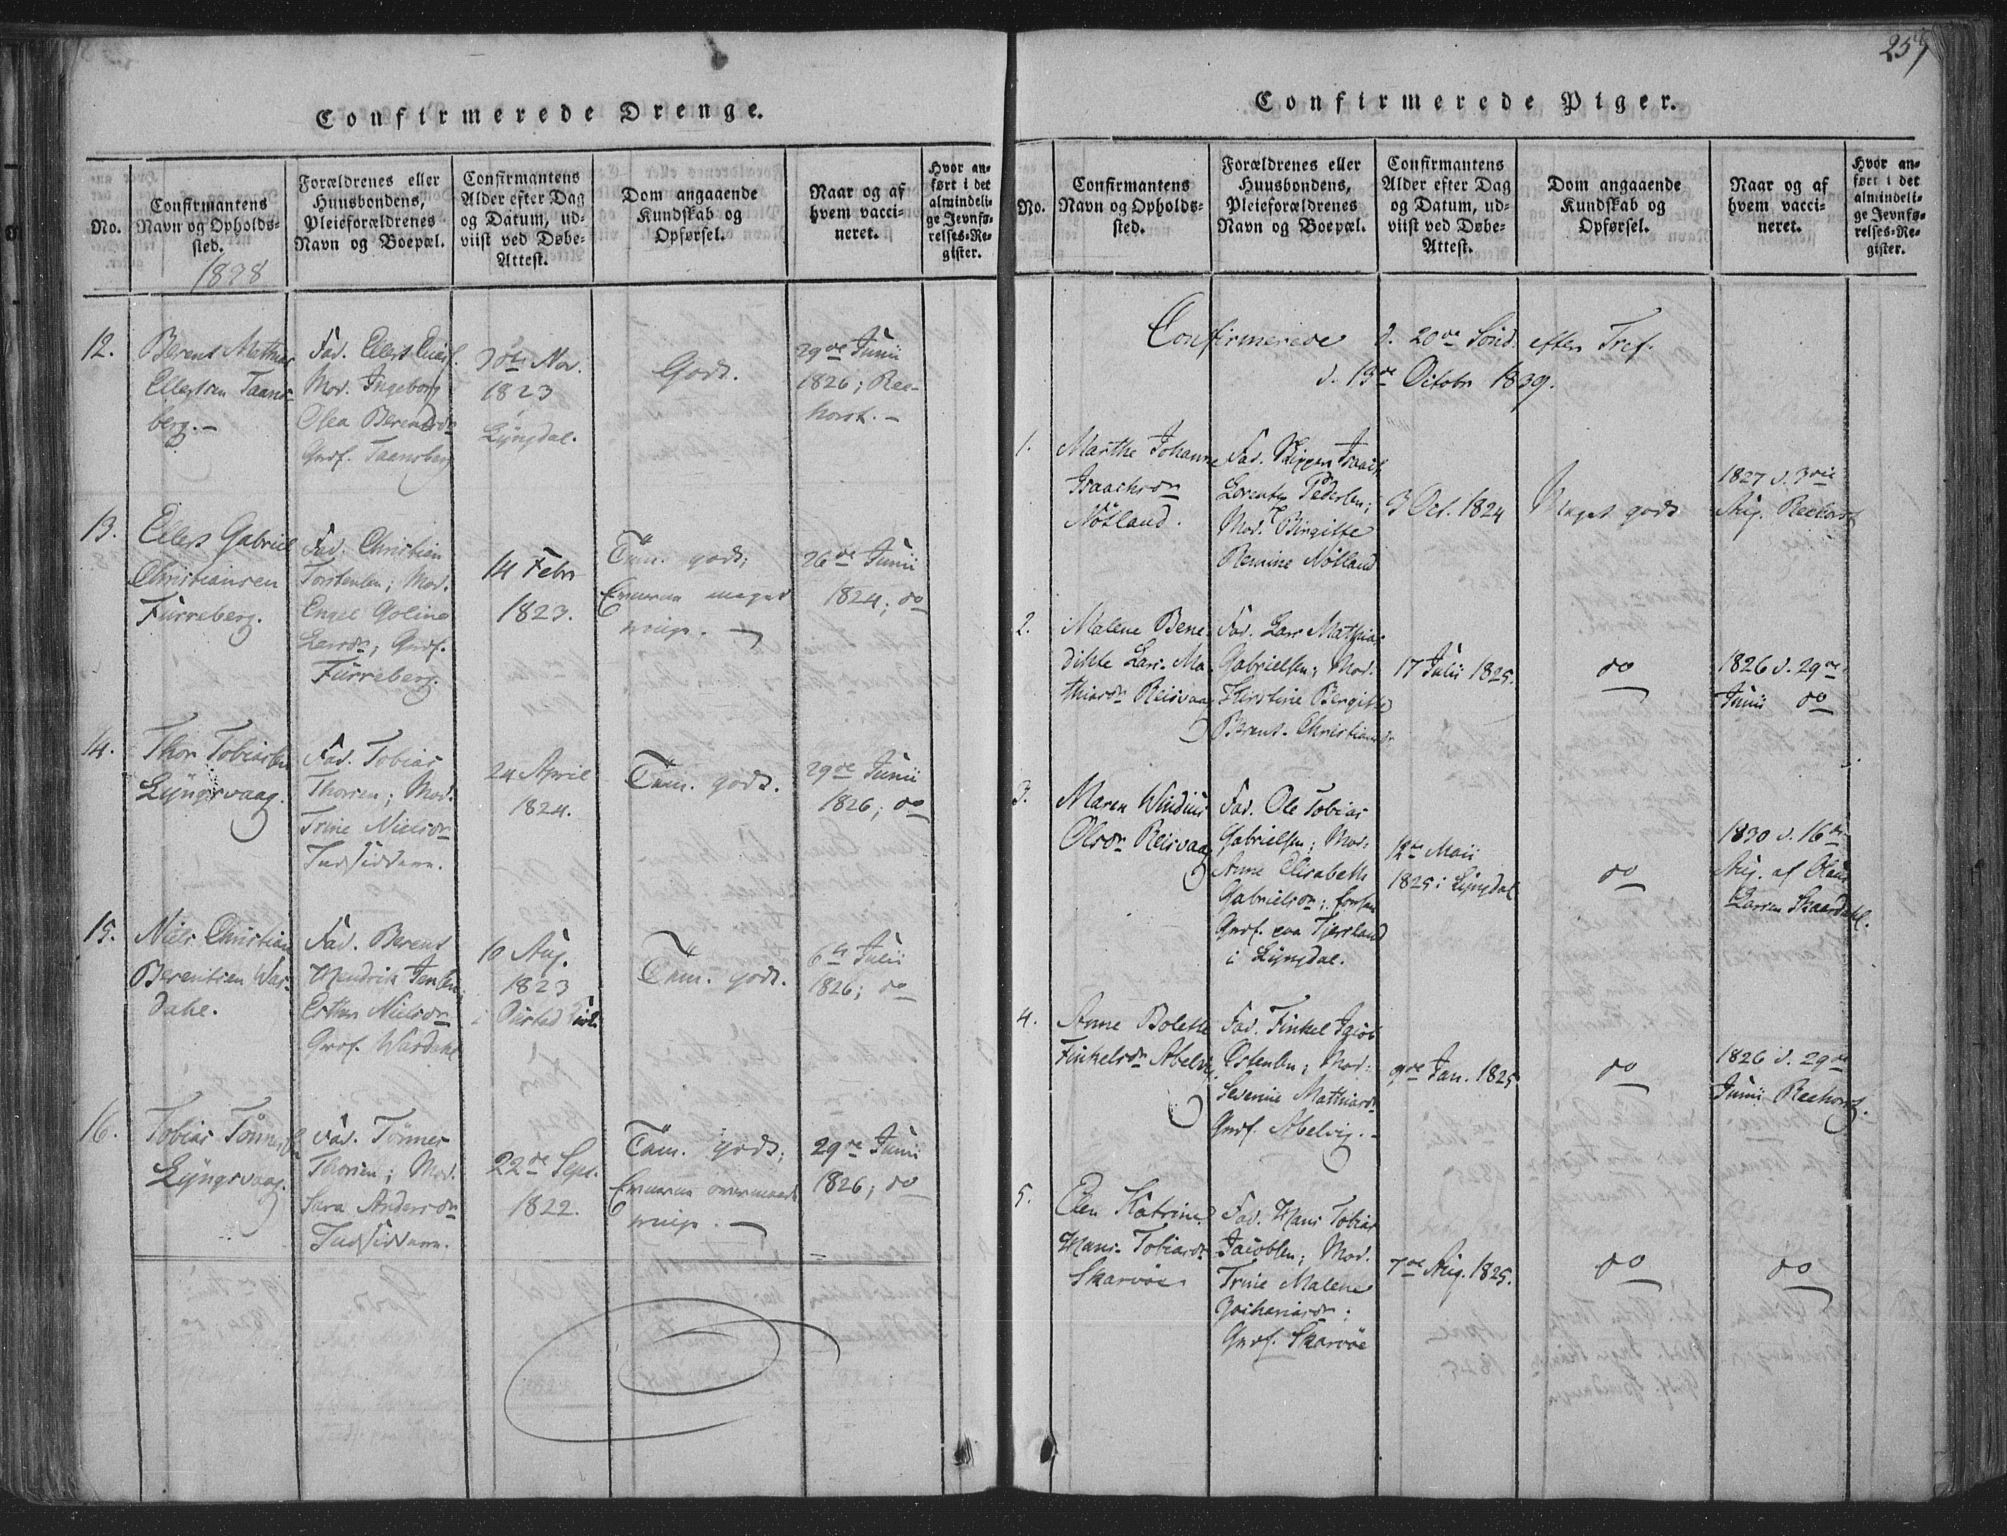 257
Confirmerede Drenge.
No.
Confirmantens
Navn og Opholds-
sted.
1838
Forældrenes eller
Huusbondens,
Pleieforældrenes
Navn og Boepæl.
Confirmantens
Alder efter Dag
og Datum, ud-
viist ved Døbe-
Attest.
Dom angaaende
Kundskab og
Opførsel.
Naar og af
hvem vacci-
neret.
Hvor an-
ført i det
almindeli-
ge Jevnfø-
relses-Re-
gister.
12.
Berent Mathias
Ellertsen Taans-
berg.-
Fad. Ellert
Mod. Ingeborg
Olea Berendsdr
Grdf. Taansberg
Nov.
1823
Lyngdal.
Godt.
29de Junii
1826; Ree-
horst.-
13.
Ellert Gabriel
Christiansen
Furreberg.
Fad. Christian
Torstensen; Mod.
Engel Goline
Larsdr; Grdf.
Furreberg.
14 Febr
1823.
Tem. godt;
Evnerne meget
ringe.
26de Junii
1824; do
14.
Thor Tobiassen
Lyngsvaag.
Fad. Tobias
Thorsen; Mod.
Trine Nielsdr
Indsiddere.
24 April
1824.
Tem. godt.
29de Junii
1826; do
15.
Niels Christian
Berentsen War-
dahl.
Fad. Berent
Hendrik Jensen
Esther Nielsdr
Grdf. Wardahl
10 Aug.
1823
i
Tem. godt.
6te Julii
1826; do
16.
Tobias Tønnessen
Lyngsvaag.
Fad. Tønnes
Thorsen; Mod.
Sara Andersdr
Indsiddere.
22de Sept.
1822.
Tem. godt;
Evnerne overmaade
ringe.
29de Junii
1826; do
Confirmerede Piger.
No.
Confirmantens
Navn og Opholds-
sted.
Forældrenes eller
Huusbondens,
Pleieforældrenes
Navn og Boepæl.
Confirmantens
Alder efter Dag
og Datum, ud-
viist ved Døbe-
Attest.
Dom angaaende
Kundskab og
Opførsel.
Naar og af
hvem vacci-
neret.
Hvor an-
ført i det
almindeli-
ge Jevnfø-
relses-Re-
gister.
Confirmerede d. 20de Sönd. efter Tref.
d. 13de Octobr 1839.
1.
Marthe Johanne
Isaachsdr
Nøtland.
Fad. Skipper Isaach
Lorents Pedersen;
Mod. Birgitte
Remine Nøtland
3 Oct. 1824
Meget godt
1827 d. 3die
Aug. Reehorst
2.
Malene Bene-
dikte Lars Ma-
thiasdr Reisvaag
Fad. Lars Mathias
Gabrielsen; Mod.
Kerstine Birgitte
Berent-Christiansdr
17 Julii 1825.
do
1826 d. 29de
Junii do
3.
Maren Windine
Olsdr Reisvaag
Fad. Ole Tobias
Gabrielsen; Mod.
Anne Elisabeth
Gabrielsdr; forhen
Grdf. paa Tjersland
i Lyngdal.
12te Maii
1825 i Lyngdal
do
1830 d. 16de
Aug. af Olaus
Larsen Skaardahl.
4.
Anne Bolette
Finkelsdr Abelvig.
Fad. Finkel Jacob
Ostensen; Mod.
Severine Mathiasdr
Grdf. Abelvig.-
9de Jan. 1825
do
1826 d. 29de
Junii Reehorst.
5.
Elen Katrine
Hans-Tobiasdr
Skarvøe
Fad. Hans Tobias
Jacobsen; Mod.
Trine Malene
Zachariasdr;
Grdf. Skarvøe
7de Aug. 1825.
do
do